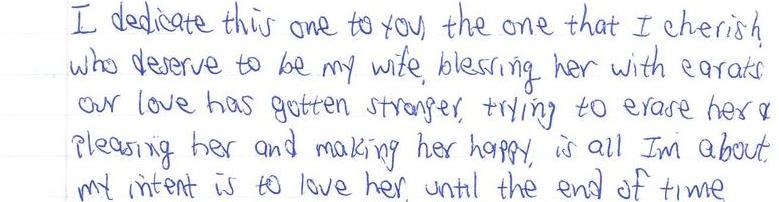 I dedicate this one to you, the one that I cherish,
who deserve to be my wife, blessing her with carats
our love has gotten stronger, trying to erase her &
pleasing her and making her happy, is all Im about.
my intent is to love her, until the end of time